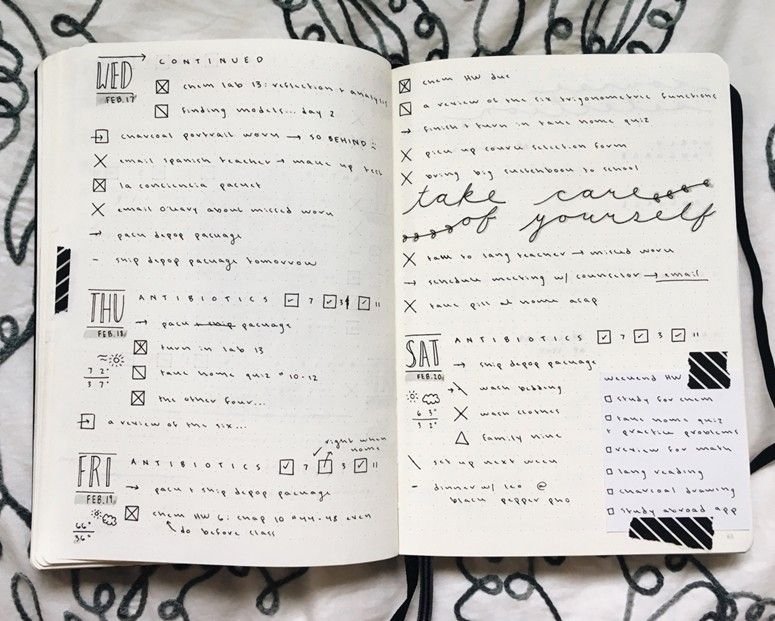 WED CONTINUED
FEB.17
chem lab 13: reflection + analysis
finding models... day 2
charcoal portrait work → SO BEHIND :(
email spanish teacher → make up test
la conciencia packet
email o'leary about missed work
→ pack depop package
- ship depop package tomorrow
THU ANTIBIOTICS 7 3 11
FEB.18
→ pack + ship package
turn in lab 13
72° take home quiz #10-12
37°
the other four...
a review of the six...
right when home
FRI ANTIBIOTICS 7 3 11
FEB.19
→ pack + ship depop package
66° chem HW 6: chap 10 #44-48 even
36° do before class
chem HW due
a review of the six trigonometric functions
→ finish + turn in take home quiz
pick up course selection form
bring big sketchbook to school
take care
of yourself
talk to lang teacher → missed work
→ schedule meeting w/ counselor → email
take pill at home asap
SAT ANTIBIOTICS 7 3 11
FEB.20
→ ship depop package
wash bedding
63° wash clothes
32°
family hike
set up next week
- dinner w/ leo @
black pepper pho
weekend HW
study for chem
take home quiz
+ practice problems
review for math
lang reading
charcoal drawing
study abroad app